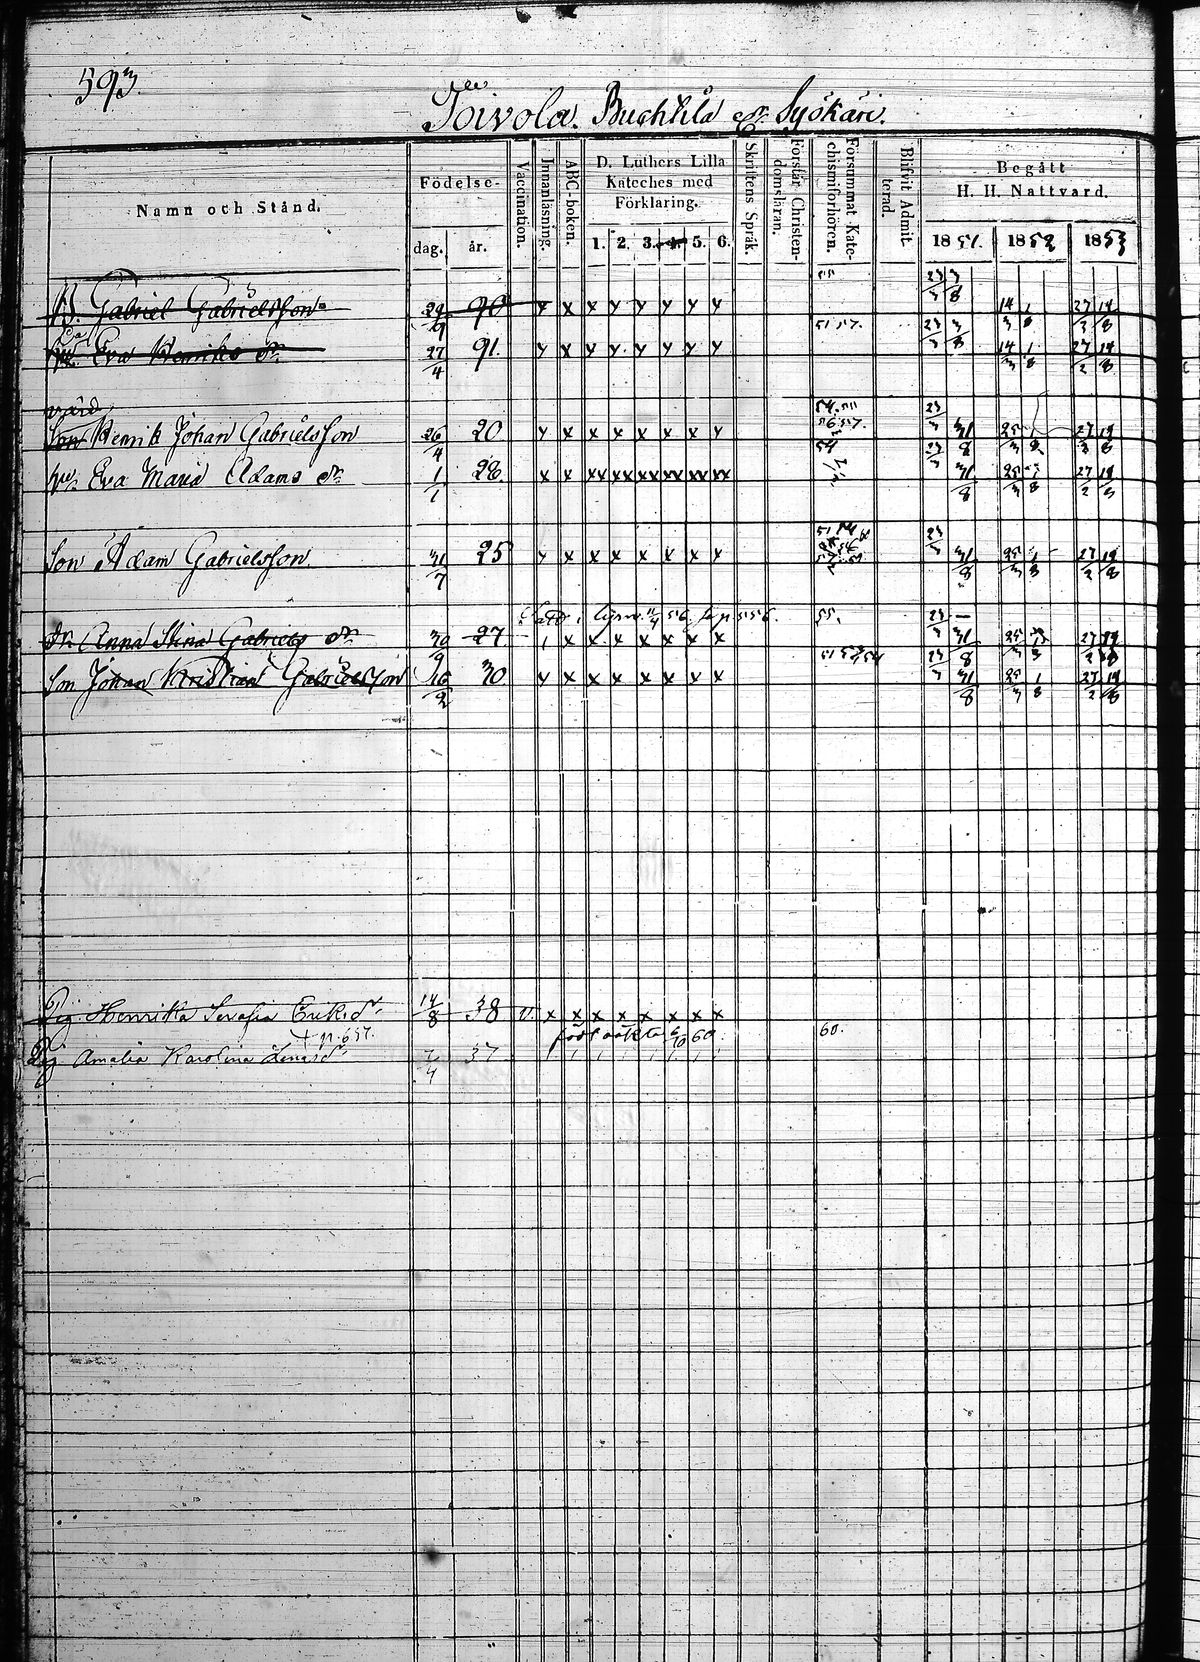 593.
Toivola. Buchkila Syökäri.
Namn och Stånd.
Födelse-
dag. år.
Vaccination.
Innanläsning.
ABC-boken.
D. Luthers Lilla
Kateches med
Förklaring.
1. 2. 3. 4. 5. 6.
Skriftens Språk.
Förstår Christen-
domsläran.
Försummat Kate-
chismiförhören.
Blifvit Admit-
terad.
Begått
H. H. Nattvard.
1851. 1852 1853
55 23/3 3/8
B. Gabriel Gabrielsson 29/9 90 x x x x x x x x 14/3 1/8 27/2 14/8
51 57. 23/3 3/8
Eva Henriks dr 27/4 91. x x x x x x x x 14/3 1/8 27/2 14/8
värd
54. 23/3
son Henrik Johan Gabrielsson 26/4 20 x x x x x x x x 56 57. 31/8 25/3 27/2 14/8
Eva Maria Adams dr 1/1 28. x x xx xx xx xx xx xx 54 23/3 31/8 25/3 27/2 14/8
son Adam Gabrielsson 31/7 25 x x x x x x x x 23/3 31/8 25/3 1/8 27/2 14/8
55. 23/3
dr Anna Stina Gabriels dr 30/9 27 x x x x x x 31/8 25/3 27/2 14/8
son Johan Kristian Gabrielsson 16/2 30 x x x x x x x x 23/3 31/8 25/3 1/8 27/2 14/8
Pig Henrika Serafia Eriksdr 14/8 38 v. x x x x x x x x
+ p. 657. född oäkta 6/10 60. 60.
Pig Amalia Karolina 7/4 37